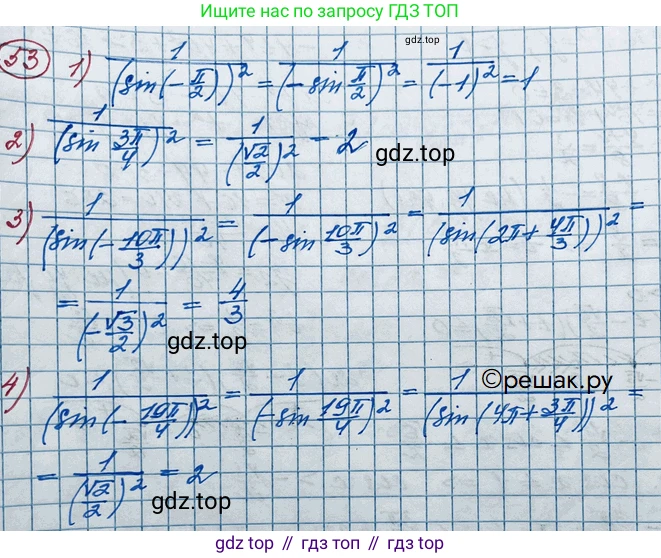 Ищите нас по запросу ГДЗ ТОП
33 1) 1/(sin(-π/2))² = 1/(-sin π/2)² = 1/(-1)² = 1
2) 1/(sin 3π/4)² = 1/(√2/2)² = 2
gdz.top
3) 1/(sin(-10π/3))² = 1/(-sin 10π/3)² = 1/(sin(2π+4π/3))² =
= 1/(-√3/2)² = 4/3
gdz.top
©решак.ру
4) 1/(sin(-19π/4))² = 1/(-sin 19π/4)² = 1/(sin(4π+3π/4))² =
= 1/(√2/2)² = 2
gdz.top
gdz top // гдз топ // gdz.top